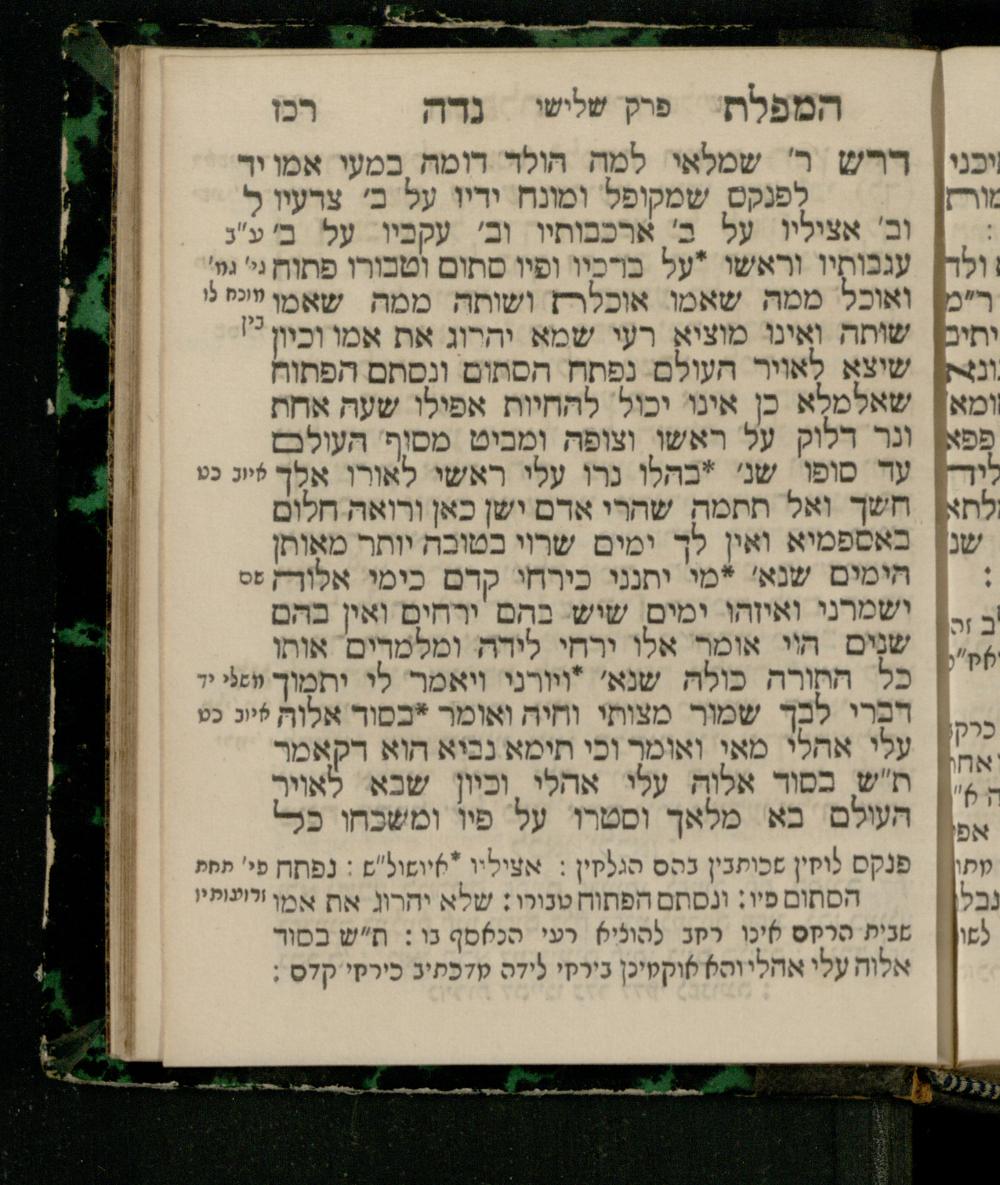 המפלת פרק שלישי נדה רכז
דרש ר' שמלאי למה הולד דומה במעי אמו יד
לפנקס שמקופל ומונח ידיו על ב' צדעיו ל
וב' אציליו על ב' ארכבותיו וב' עקביו על ב' ע"ב
עגבותיו וראשו *על ברכיו ופיו סתום וטבורו פתוח גי' גמ'
ואוכל ממה שאמו אוכלת ושותה ממה שאמו מונח לו
שותה ואינו מוציא רעי שמא יהרוג את אמו וכיון בין
שיצא לאויר העולם נפתח הסתום ונסתם הפתוח
שאלמלא כן אינו יכול להחיות אפילו שעה אחת
ונר דלוק על ראשו וצופה ומביט מסוף העולם
עד סופו שנ' *בהלו נרו עלי ראשי לאורו אלך איוב כט
חשך ואל תתמה שהרי אדם ישן כאן ורואה חלום
באספמיא ואין לך ימים שרוי בטובה יותר מאותן
הימים שנא' *מי יתנני כירחי קדם כימי אלוה שם
ישמרני ואיזהו ימים שיש בהם ירחים ואין בהם
שנים הוי אומר אלו ירחי לידה ומלמדים אותו
כל התורה כולה שנא' *ויורני ויאמר לי יתמוך משלי יד
דברי לבך שמור מצותי וחיה ואומר *בסוד אלוה איוב כט
עלי אהלי מאי ואומר וכי תימא נביא הוא דקאמר
ת"ש בסוד אלוה עלי אהלי וכיון שבא לאויר
העולם בא מלאך וסטרו על פיו ומשכחו כל
פנקס לוחין שכותבין בהם הגלחין : אציליו *איושול"ש : נפתח פי' תחת
הסתום פיו : ונסתם הפתוח טבורו : שלא יהרוג את אמו זרועותיו
שבית הרחם אינו רחב להוציא רעי הנאסף בו : ת"ש בסוד
אלוה עלי אהלי והא אוקמינן בירחי לידה מדכתיב כירחי קדם :